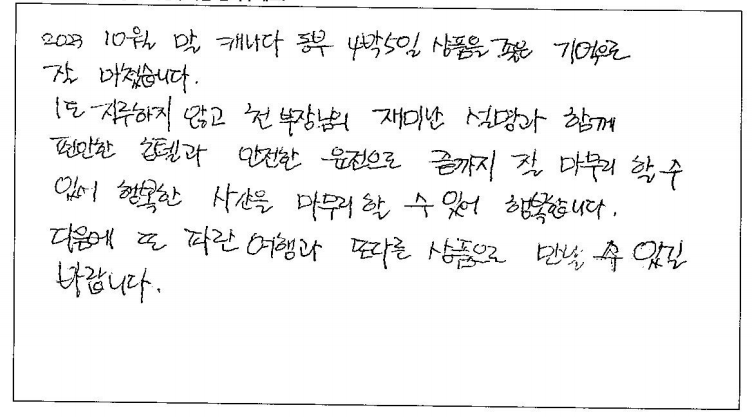 2023 10월 말 캐나다 동부 4박5일 상품을 좋은 기억으로
잘 마쳤습니다.
1도 지루하지 않고 전 부장님의 재미난 설명과 함께
편안한 호텔과 안전한 운전으로 끝까지 잘 마무리 할 수
있어 행복한 시간을 마무리 할 수 있어 행복합니다.
다음에 또 파란 여행과 또다른 상품으로 만날 수 있길
바랍니다.